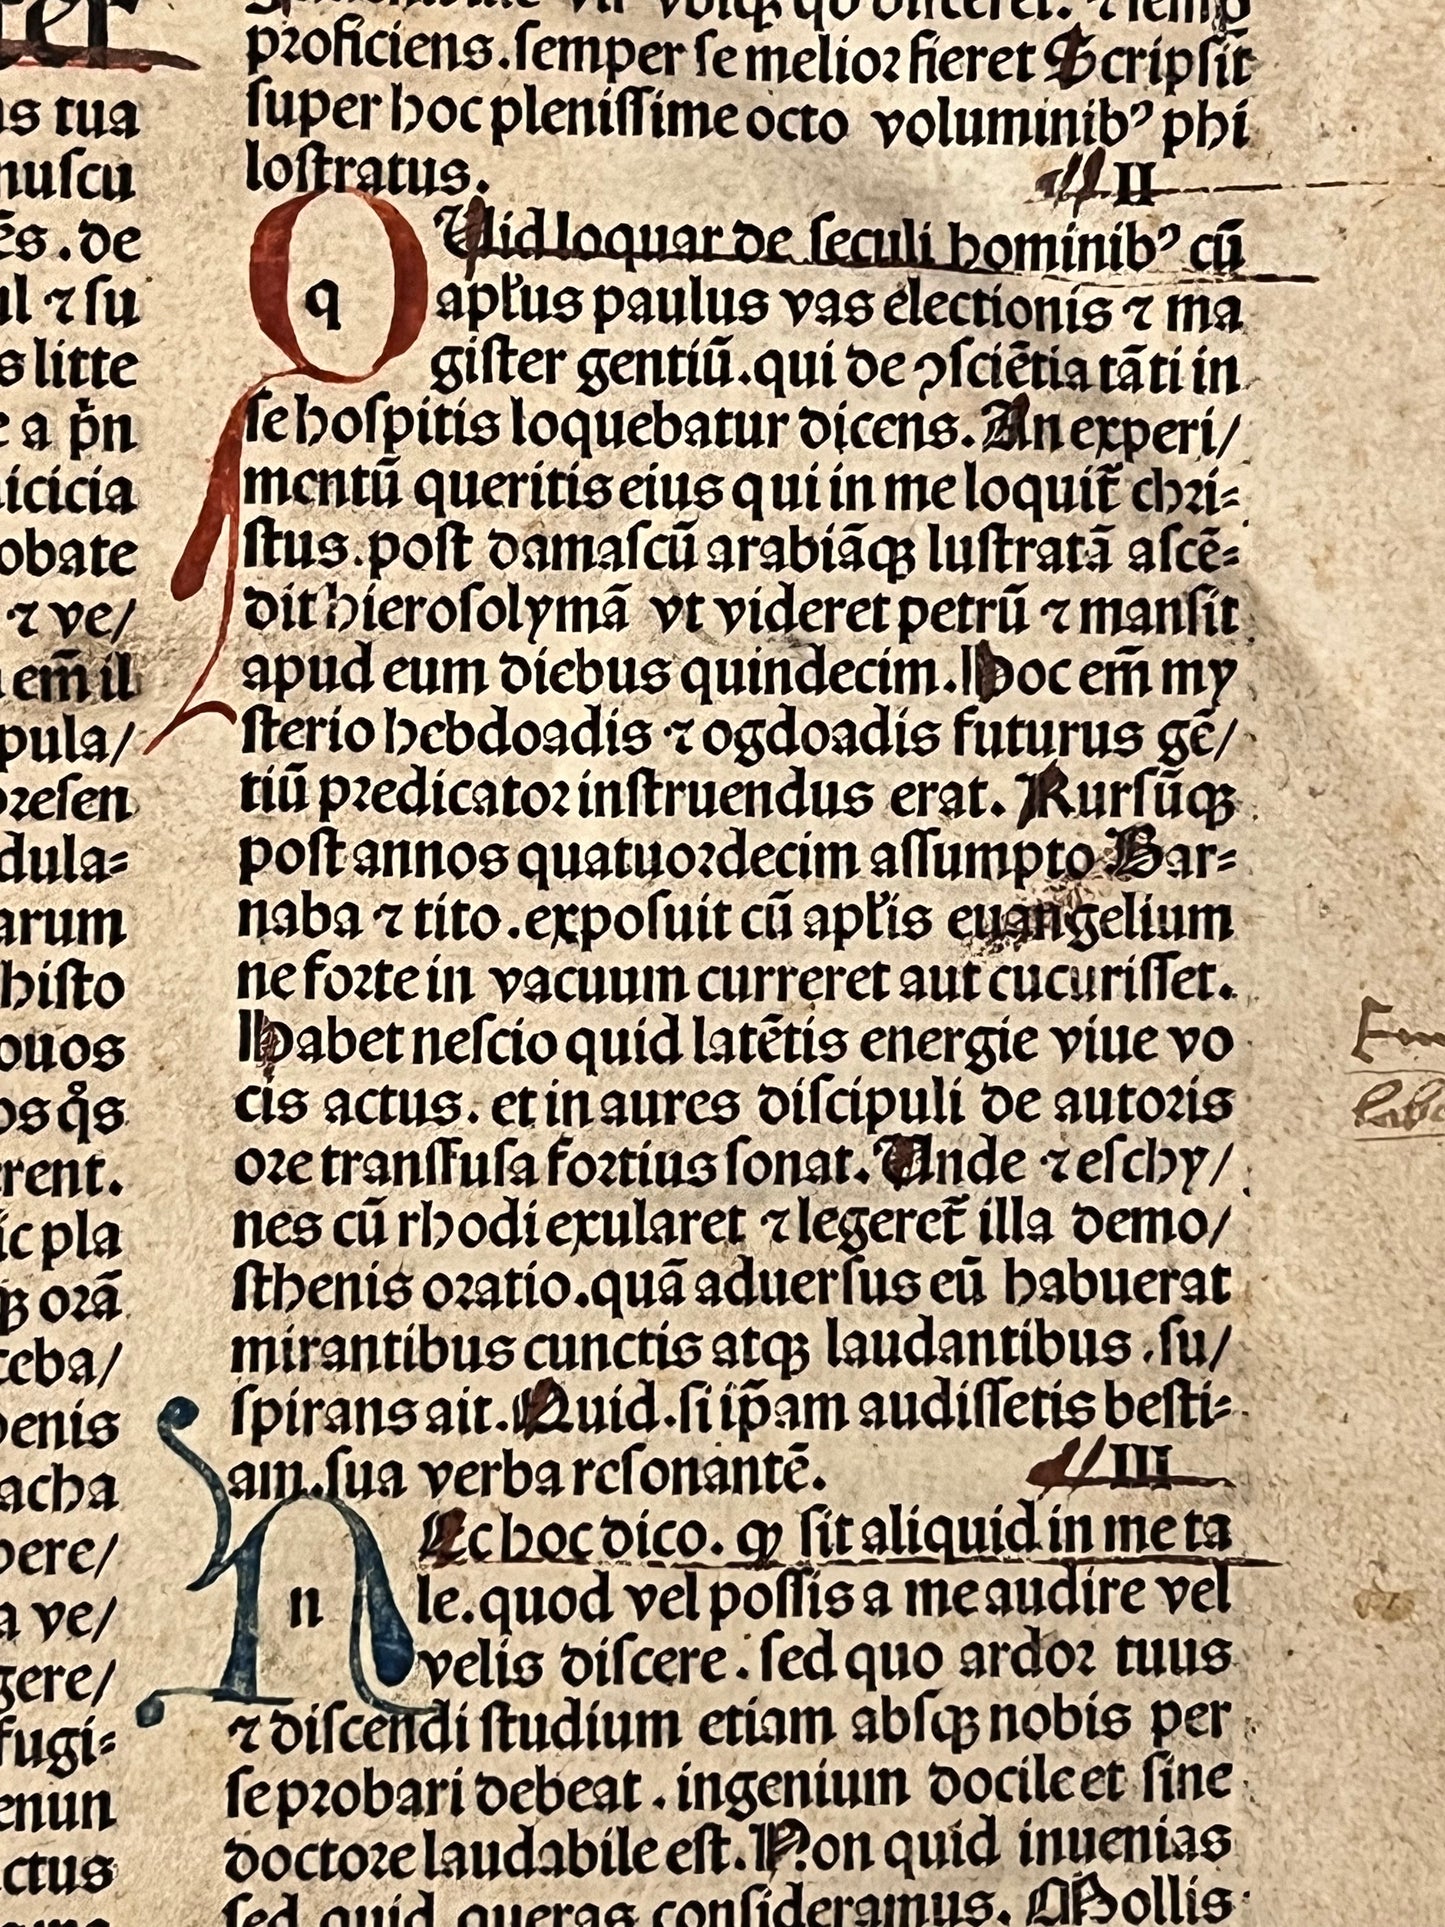 ter
ns tua
nuſcu
ēs. de
ul ⁊ ſu
s litte
e a p̄n
icicia
obate
⁊ ve/
em̄ il
pula/
preſen
dula⸗
arum
hiſto
ouos
os q̊s
rent.
ic pla
qꝫ orā
ceba/
henis
acha
pere/
a ve/
gere/
fugi⸗
enun
ctus
proficiens. ſemper ſe melior fieret Scripſit
ſuper hoc pleniſſime octo voluminibꝰ phi
loſtratus.
II
Quid loquar de ſeculi hominibꝰ cū
q apl̄us paulus vas electionis ⁊ ma
giſter gentiū. qui de ꝯſciētia tāti in
ſe hoſpitis loquebatur dicens. An experi/
mentū queritis eius qui in me loquit̄ chri⸗
ſtus. poſt damaſcū arabiāqꝫ luſtratā aſcē⸗
dit hieroſolymā vt videret petrū ⁊ manſit
apud eum diebus quindecim. Hoc em̄ my
ſterio hebdoadis ⁊ ogdoadis futurus gē/
tiū predicator inſtruendus erat. Rurſūqꝫ
poſt annos quatuordecim aſſumpto Bar⸗
naba ⁊ tito. expoſuit cū apl̄is euangelium
ne forte in vacuum curreret aut cucuriſſet.
Habet neſcio quid latētis energie viue vo
cis actus. et in aures diſcipuli de autoris
ore tranſfuſa fortius ſonat. Unde ⁊ eſchy/
nes cū rhodi exularet ⁊ legeret̄ illa demo/
ſthenis oratio. quā aduerſus eū habuerat
mirantibus cunctis atqꝫ laudantibus. ſu/
ſpirans ait. Quid. ſi ip̄am audiſſetis beſti⸗
am. ſua verba reſonantē.
III
Nec hoc dico. ꝙ ſit aliquid in me ta
n le. quod vel poſſis a me audire vel
velis diſcere. ſed quo ardor tuus
⁊ diſcendi ſtudium etiam abſqꝫ nobis per
ſe probari debeat. ingenium docile et ſine
doctore laudabile eſt. Non quid inuenias
ſed quid queras conſideramus. Mollis